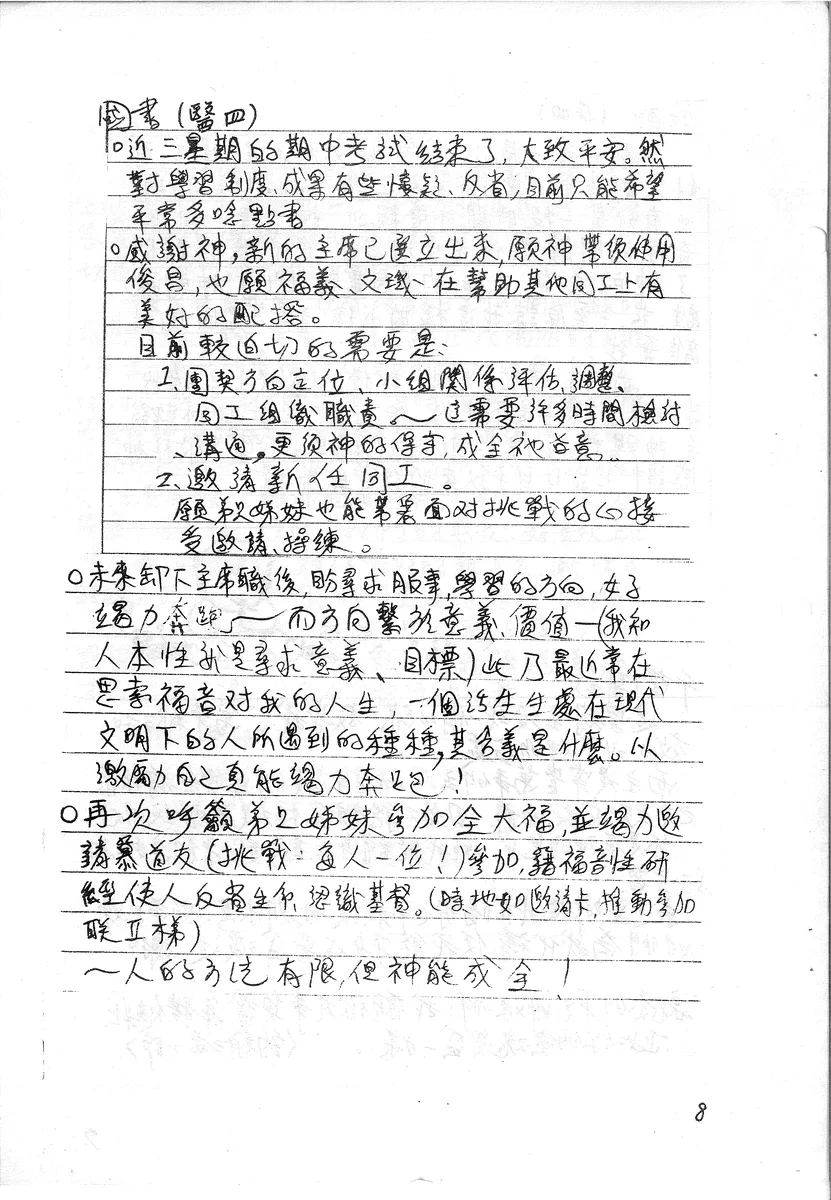 國書(醫四)
○近三星期的期中考試結束了,大致平安。然
對學習制度、成果有些懷疑、反省,目前只能希望
平常多唸點書
○感謝神,新的主席已選立出來,願神帶領使用
俊昌,也願福義、文璣、在幫助其他同工上有
美好的配搭。
目前較迫切的需要是:
1、團契方向定位、小組關係評估、調整、
同工組織職責。~這需要許多時間檢討
、溝通。更須神的保守,成全祂旨意。
2、邀請新任同工。
願弟兄姊妹也能帶著面对挑戰的心接
受邀請、操練。
○未來卸下主席職後,盼尋求服事,學習的方向,好
竭力奔跑~而方向繫於意義、價值—(我知
人本性就是尋求意義、目標)此乃最近常在
思索福音对我的人生,一個活生生處在現代
文明下的人所遇到的種種,其含義是什麼。以
激勵自己真能竭力奔跑!
○再次呼籲弟兄姊妹參加全大福,並竭力邀
請慕道友(挑戰:每人一位!)參加,藉福音性研
經使人反省生命,認識基督。(時地如邀請卡,推動參加
联II梯)
~人的方法有限,但神能成全!
8